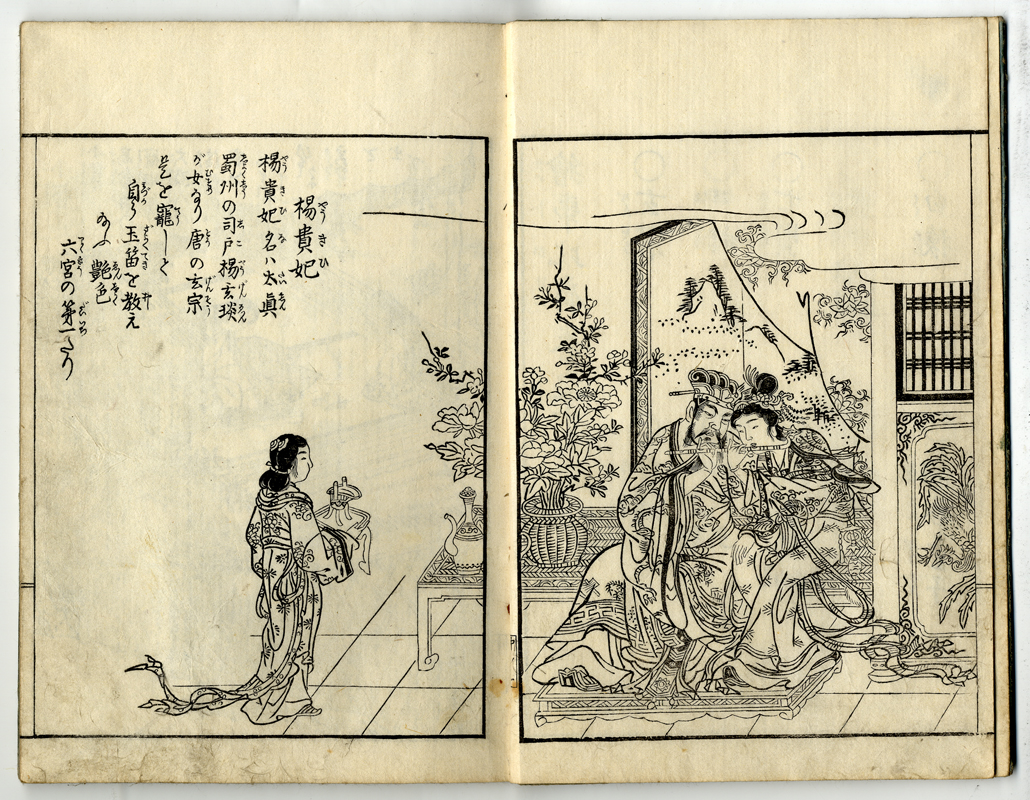 楊貴妃
楊貴妃名ハ太眞
蜀州の司戸楊玄琰
が女なり唐の玄宗
是を寵しと
自ら玉笛を教え
なふ艶色
六宮の第一たり